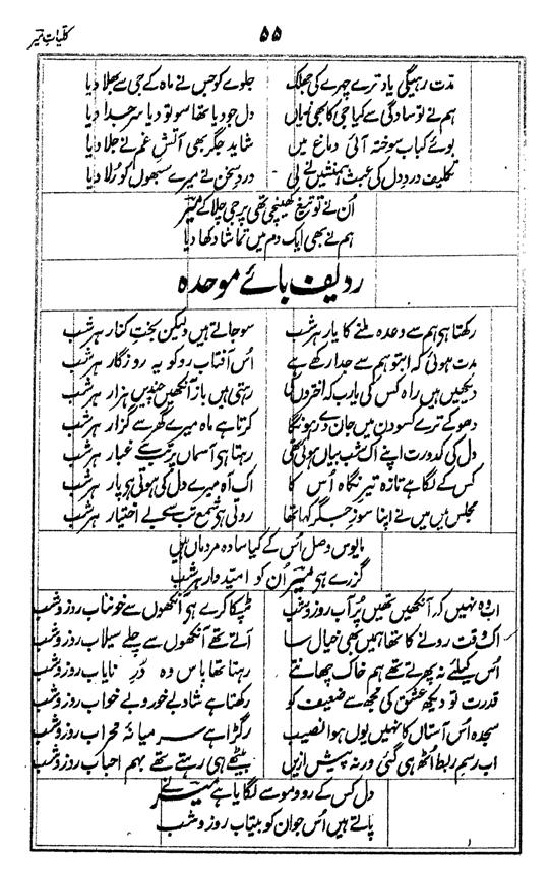 ۵۵
کلیاتِ میر
مدت رہیگی یاد ترے چہرے کی جھلک جلوے کو جس نے ماہ کے جی سے بھلا دیا
ہم نے تو سادگی سے کیا جی کا بھی زیاں دل جو دیا تھا سو تو دیا سر جدا دیا
بوئے کباب سوختہ آئی دماغ میں شاید جگر بھی آتش غم نے جلا دیا
تکلیف درد دل کی عبث ہمنشیں نے کی درد سخن نے میرے سبھوں کو رلا دیا
اُن نے تو تیغ کھینچی تھی پر جی چلا کے میر
ہم نے بھی ایک دم میں تماشا دکھا دیا
ردیف بائے موحدہ
رکھتا ہی ہم سے وعدہ ملنے کا یار ہر شب سو جاتے ہیں ولیکن بخت کنار ہر شب
مدت ہوئی کہ ابتو ہم سے جدا رکھے ہے اس آفتاب رو کو یہ روزگار ہر شب
دیکھیں ہیں راہ کس کی یارب کہ اختروں کی رہتی ہیں باز آنکھیں چندیں ہزار ہر شب
دھوکے ترے کسو دن میں جان دے رہونگا کرتا ہے ماہ میرے گھر سے گزار ہر شب
دل کی کدورت اپنے اک شب بیاں ہوئی تھی رہتا ہی آسماں پر تب سے غبار ہر شب
کس کے لگا ہے تازہ تیر نگاہ اُس کا اک آہ میرے دل کی ہوتی ہی پار ہر شب
مجلس میں میں نے اپنا سوز جگر کہا تھا روتی ہی شمع تب سے بے اختیار ہر شب
مایوس وصل اُس کے کیا سادہ مردماں ہیں
گزرے ہی میر اُن کو امیدوار ہر شب
اب وہ نہیں کہ آنکھیں تھیں پُر آب روز و شب ٹپکا کرے ہی آنکھوں سے خونناب روز و شب
اک وقت رونے کا تھا ہمیں بھی خیال سا آتے تھے آنکھوں سے چلے سیلاب روز و شب
اُس کیلئے نہ پھرتے تھے ہم خاک چھانتے رہتا تھا پاس وہ دُرِ نایاب روز و شب
قدرت تو دیکھ عشق کی مجھ سے ضعیف کو رکھتا ہے شاد بے خور و بے خواب روز و شب
سجدہ اُس آستاں کا نہیں یوں ہوا نصیب رگڑا ہے سر میانۂ محراب روز و شب
اب رسم ربط اُٹھ ہی گئی ورنہ پیش ازیں بیٹھے ہی رہتے تھے بہم احباب روز و شب
دل کس کے رو و مو سے لگایا ہے میر نے
پاتے ہیں اُس جوان کو بیتاب روز و شب